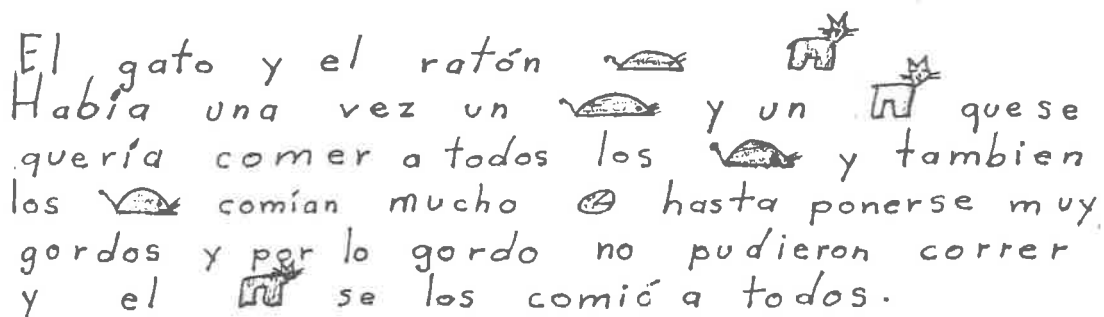 El gato y el ratón
Había una vez un y un que se
quería comer a todos los y tambien
los comían mucho hasta ponerse muy
gordos y por lo gordo no pudieron correr
y el se los comió a todos.